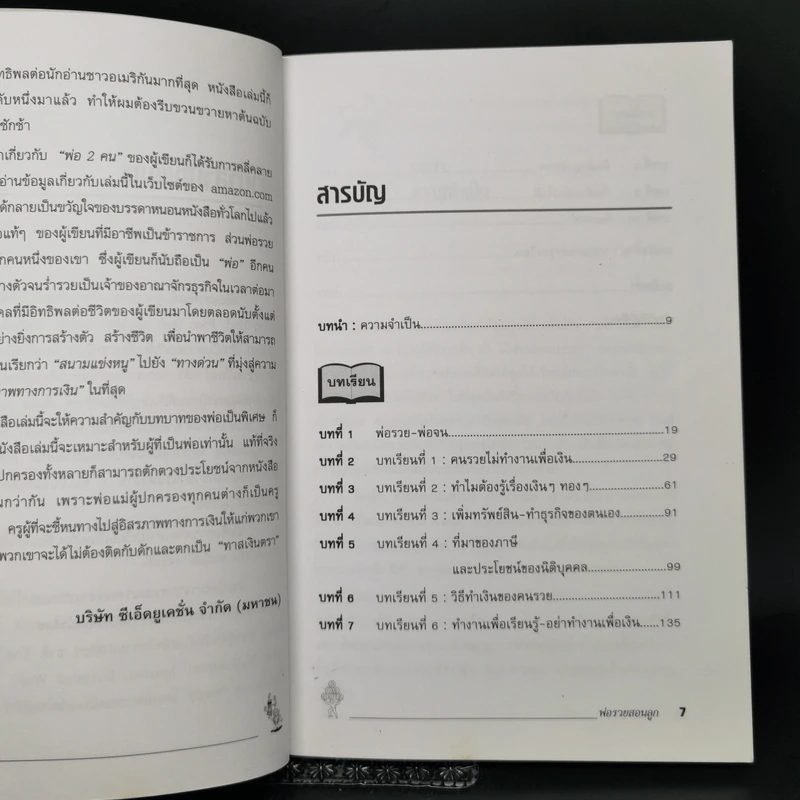 ทธิพลต่อนักอ่านชาวอเมริกันมากที่สุด หนังสือเล่มนี้ก็
ับหนึ่งมาแล้ว ทำให้ผมต้องรีบขวนขวายหาต้นฉบับ
ชักช้า
าเกี่ยวกับ “พ่อ 2 คน” ของผู้เขียนก็ได้รับการคลี่คลาย
อ่านข้อมูลเกี่ยวกับเล่มนี้ในเว็บไซต์ของ amazon.com
ด้กลายเป็นขวัญใจของบรรดาหนอนหนังสือทั่วโลกไปแล้ว
อแท้ๆ ของผู้เขียนที่มีอาชีพเป็นข้าราชการ ส่วนพ่อรวย
กคนหนึ่งของเขา ซึ่งผู้เขียนก็นับถือเป็น “พ่อ” อีกคน
างตัวจนร่ำรวยเป็นเจ้าของอาณาจักรธุรกิจในเวลาต่อมา
คลที่มีอิทธิพลต่อชีวิตของผู้เขียนมาโดยตลอดนับตั้งแต่
ย่างยิ่งการสร้างตัว สร้างชีวิต เพื่อนำพาชีวิตให้สามารถ
นเรียกว่า “สนามแข่งหนู” ไปยัง “ทางด่วน” ที่มุ่งสู่ความ
าพทางการเงิน” ในที่สุด
สือเล่มนี้จะให้ความสำคัญกับบทบาทของพ่อเป็นพิเศษ ก็
นังสือเล่มนี้จะเหมาะสำหรับผู้ที่เป็นพ่อเท่านั้น แท้ที่จริง
ปกครองทั้งหลายก็สามารถตักตวงประโยชน์จากหนังสือ
นกว่ากัน เพราะพ่อแม่ผู้ปกครองทุกคนต่างก็เป็นครู
ครูผู้ที่จะชี้หนทางไปสู่อิสรภาพทางการเงินให้แก่พวกเขา
พวกเขาจะได้ไม่ต้องติดกับดักและตกเป็น “ทาสเงินตรา”
บริษัท ซีเอ็ดยูเคชั่น จำกัด (มหาชน)
สารบัญ
บทนำ : ความจำเป็น.....9
บทเรียน
บทที่ 1 พ่อรวย-พ่อจน.....19
บทที่ 2 บทเรียนที่ 1 : คนรวยไม่ทำงานเพื่อเงิน.....29
บทที่ 3 บทเรียนที่ 2 : ทำไมต้องรู้เรื่องเงินๆ ทองๆ.....61
บทที่ 4 บทเรียนที่ 3 : เพิ่มทรัพย์สิน-ทำธุรกิจของตนเอง.....91
บทที่ 5 บทเรียนที่ 4 : ที่มาของภาษี
และประโยชน์ของนิติบุคคล.....99
บทที่ 6 บทเรียนที่ 5 : วิธีทำเงินของคนรวย.....111
บทที่ 7 บทเรียนที่ 6 : ทำงานเพื่อเรียนรู้-อย่าทำงานเพื่อเงิน.....135
พ่อรวยสอนลูก 7